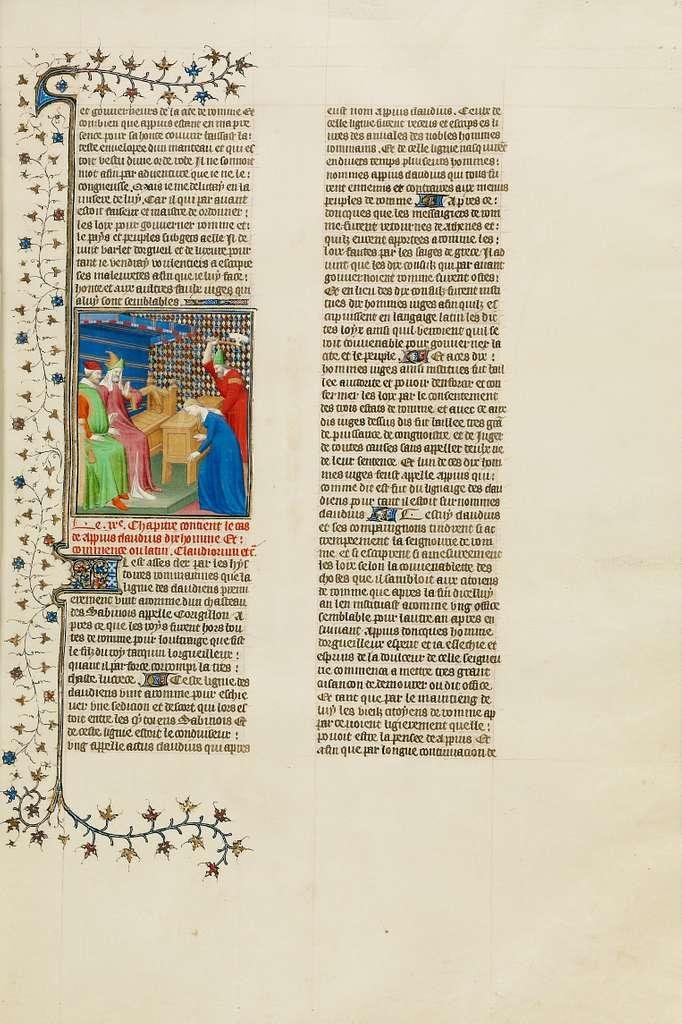 et gouverneurs de la cite de romme Et
combien que appius estant en ma pre
sence pour sa honte couvrir faissast la:
teste envelopee dun manteau et qui es
toit vestu dune orde robe Il ne sonnoit
mot afin par adventure que ie ne le:
congneusse. Mais ie me delitay en la
misere de luy. Car il qui par avant
estoit faiseur et maistre de ordonner:
les loix pour gouverner romme et:
le pays et peuples subgets a elle Il de
vint varlet dorgueil et de luxure pour
tant ie vendray voulentiers a escripre
ses maleuretes afin que ie luy face:
honte et aux aultres faulx iuges qui
a luy sont semblables.
Le .ixe. Chapitre contient le cas
de appius claudius dix homme Et:
commence ou latin. Claudiorum etc.
Il est asses cler par les hys
toires rommaines que la
ligne des claudiens premi
erement vint a romme dun chasteau
des Sabinois appelle Corigillon A
pres ce que les roys furent hors bou
tes de romme pour loultraige que fist
le filz du roy tarquin lorgueilleux:
quant il par force corrompi la tres:
chaste lucrece. Ceste ligne des
claudiens vint a romme pour eschie
ver une sedicion et descort qui lors es
toit entre les citoiens Sabinois Et
de ceste lignie estoit le conduiseur:
ung appelle actus claudius qui apres
eust nom appius claudius. Ceulx de
celle ligne furent receus et escrips es li
vres des annales des nobles hommes
rommains. Et de celle ligne nasquirent
en divers temps pluseurs hommes:
nommes appius claudius qui tous fu
rent ennemis et contraires aux menus
peuples de romme. Apres ce:
doncques que les messaigiers de rom
me furent retournes de athenes et:
quilz eurent apportees a romme les:
loix faites par les saiges de grece Il ad
vint que les dix consulz qui par avant
gouvernoient romme furent ostes:
Et en lieu des dix consulz furent insti
tues dix hommes iuges afin quilz es
cripuissent en langaige latin les dic
tes loix ainsi quil verroient quil se
roit convenable pour gouverner la
cite et le peuple. Et a ces dix:
hommes iuges ainsi institues fut bail
lee auctorite et povoir densorar et con
fermer les loix par le consentement
des trois estas de romme. et avec ce aux
dis iuges dessus dis fut baillee tres grant
de puissance de congnoistre. et de Iuger
de toutes causes sans appeller deulx ne
de leur sentence. Et lun de ces dix hom
mes iuges feust appelle appius qui:
comme dit est fut du lignaige des clau
diens pour tant il estoit surnommes
claudius. Cestuy claudius
et ses compaingnons tindrent si at
trempeement la seigneurie de rom
me. et si escriprent si amesureement
les loix selon la couvenablete des
choses que il sambloit aux citoiens
de romme que apres la fin dicelluy
an len instituast a romme ung office
semblable pour lautre an apres en
suivant Appius doncques homme
dorgueilleux esperit et ia esleschie et
esprins de la doulceur de celle seigneu
rie commenca a mettre tres grant
cusancon de demourer ou dit office.
Et tant que par le maintieng de
luy les vieilz citoyens de romme ap
parcevoient ligierement quelle:
povoit estre la pensee de appius. Et
afin que par longue continuacion de